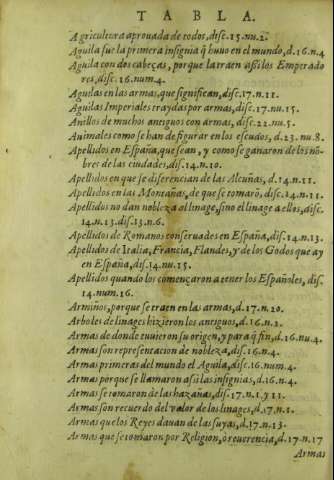 TABLA.
Agricultura aprouada de todos, disc. 15. nu. 2.
Aguila fue la primera insignia q̃ huuo en el mundo, d. 16. n. 4
Aguila con dos cabeças, porque la traen assi los Emperado
res, disc. 16. num. 4.
Aguilas en las armas, que significan, disc. 17. n. 11.
Aguilas Imperiales traydas por armas, disc. 17. nu. 15.
Anillos de muchos antiguos con armas, disc. 22. nu. 5.
Animales como se han de figurar en los escudos, d. 23. nu. 8.
Apellidos en España, que sean, y como se ganaron de los nõ-
bres de las ciudades, dis. 14. n. 10.
Apellidos en que se diferencian de las Alcuñas, d. 14. n. 11.
Apellidos en las Montañas, de que se tomarõ, disc. 14. n. 11.
Apellidos no dan nobleza al linage, sino el linage a ellos, disc.
14. n. 13. dis. 13. n. 6.
Apellidos de Romanos conseruados en España, dis. 14. n. 13.
Apellidos de Italia, Francia, Flandes, y de los Godos que ay
en España, dis. 14. nu. 15.
Apellidos quando los començaron a tener los Españoles, dis.
14. num. 16.
Armiños, porque se traen en las armas, d. 17. n. 20.
Arboles de linages hizieron los antiguos, d. 16. n. 1.
Armas de donde tuuieron su origen, y para q̃ fin, d. 16. nu. 4.
Armas son representacion de nobleza, dis. 16. n. 4.
Armas primeras del mundo el Aguila, disc. 16. num. 4.
Armas porque se llamaron assi las insignias, d. 16. n. 4.
Armas se tomaron de las hazañas, dis. 17. n. 1. y 11.
Armas son recuerdo del valor de los linages, d. 17. n. 1.
Armas que los Reyes dauan de las suyas, d. 17. n. 13.
Armas que se tomaron por Religion, o reuerencia, d. 17. n. 17
Armas